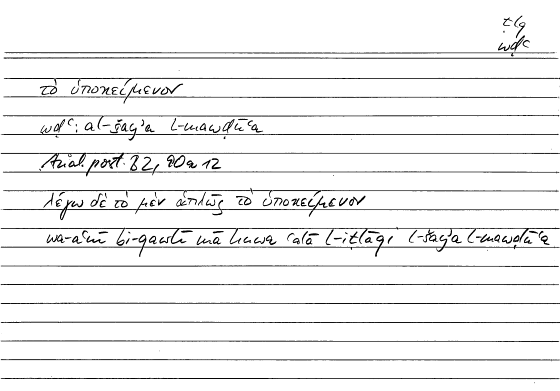 ṭlq
wḍʿ
τὸ ὑποκείμενον
wḍʿ: al-šayʾa l-mawḍūʿa
Anal. post. B2, 90a12
λέγω δὲ τὸ μὲν ἁπλῶς τὸ ὑποκείμενον
wa-aʿnī bi-qawlī mā huwa ʿalā l-iṭlāqi l-šayʾa l-mawḍūʿa